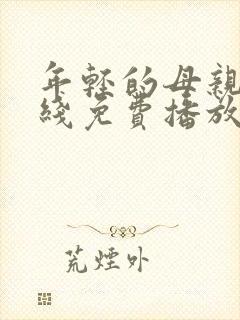 年轻的母亲
线免费播放
荒烟外